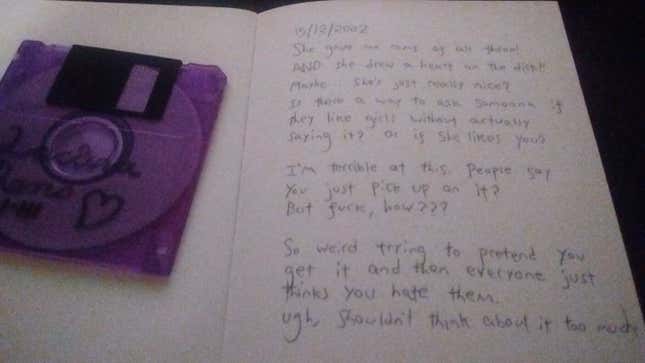 Roms
I-III
15/12/2002
She gave me roms of all three!
AND she drew a heart on the disk!!
Maybe... She's just really nice?
Is there a way to ask someone if
they like girls without actually
saying it? Or if she likes you?
I'm terrible at this. People say
You just pick up on it?
But fuck, how???
So weird trying to pretend you
get it and then everyone just
thinks you hate them.
ugh, shouldn't think about it too much